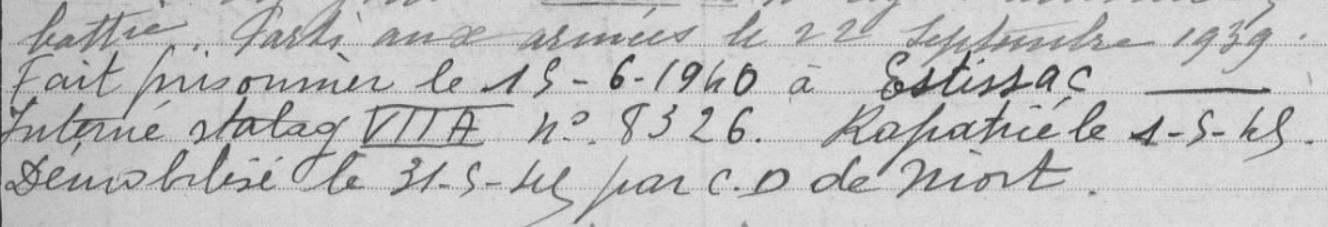 battrie. Parti aux armées le 22 Septembre 1939.
Fait prisonnier le 15-6-1940 à Estissac
Interné stalag VII A n°. 8326. Rapatrié le 1-5-45.
Démobilisé le 31-5-45 par C.D de Niort.